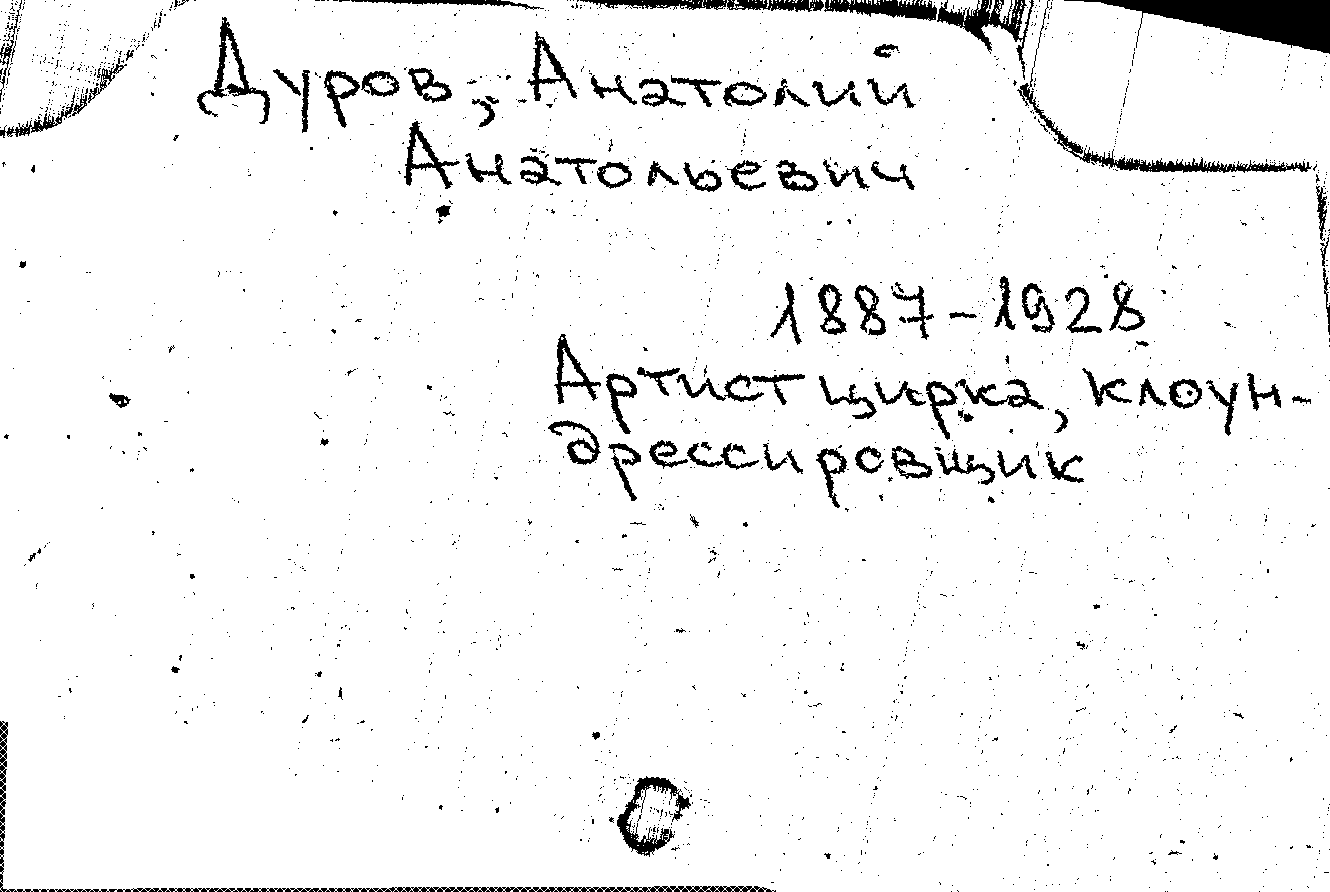 Дуров, Анатолий
Анатольевич
1887-1928
Артист цирка, клоун-
дрессировщик